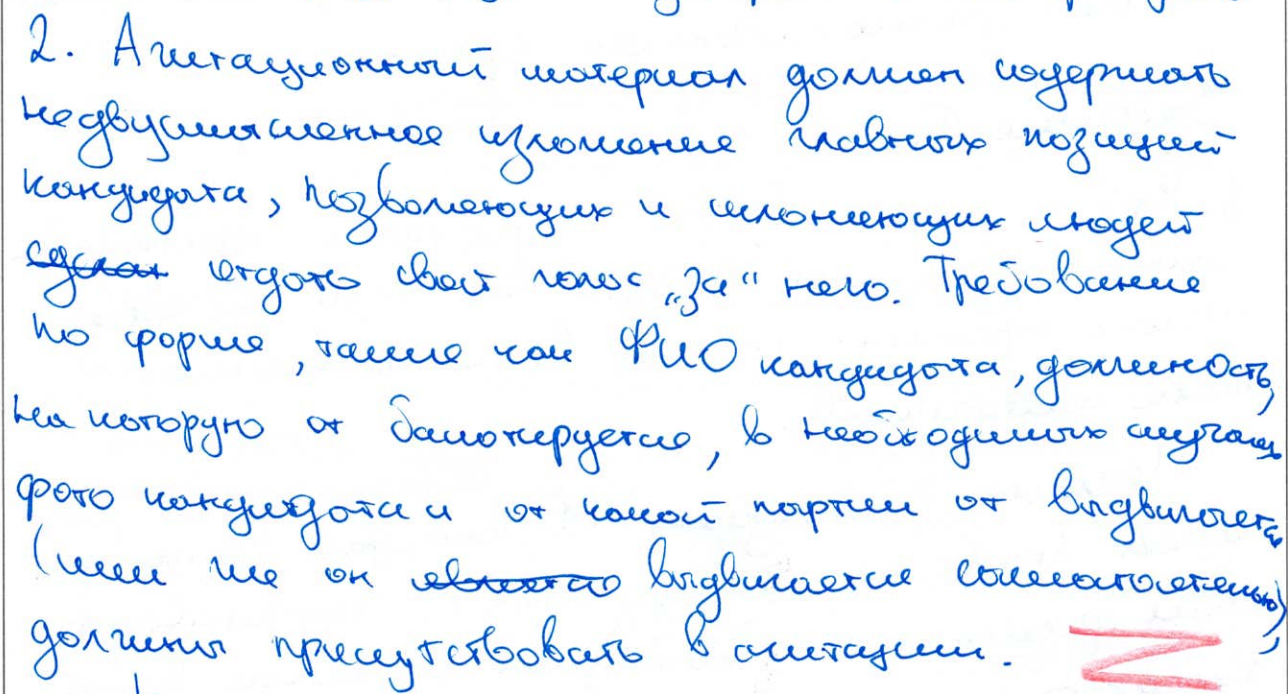 2. Агитационный материал должен содержать
недвусмысленное изложение главных позиций
кандидата, позволяющих и склоняющих людей
сделат отдать свой голос „за“ него. Требование
по форме, такие как ФИО кандидата, должность,
на которую он баллотируется, в необходимых случаях
фото кандидата и от какой партии он выдвигается
(или же он является выдвигается самостоятельно),
должны присутствовать в агитации.